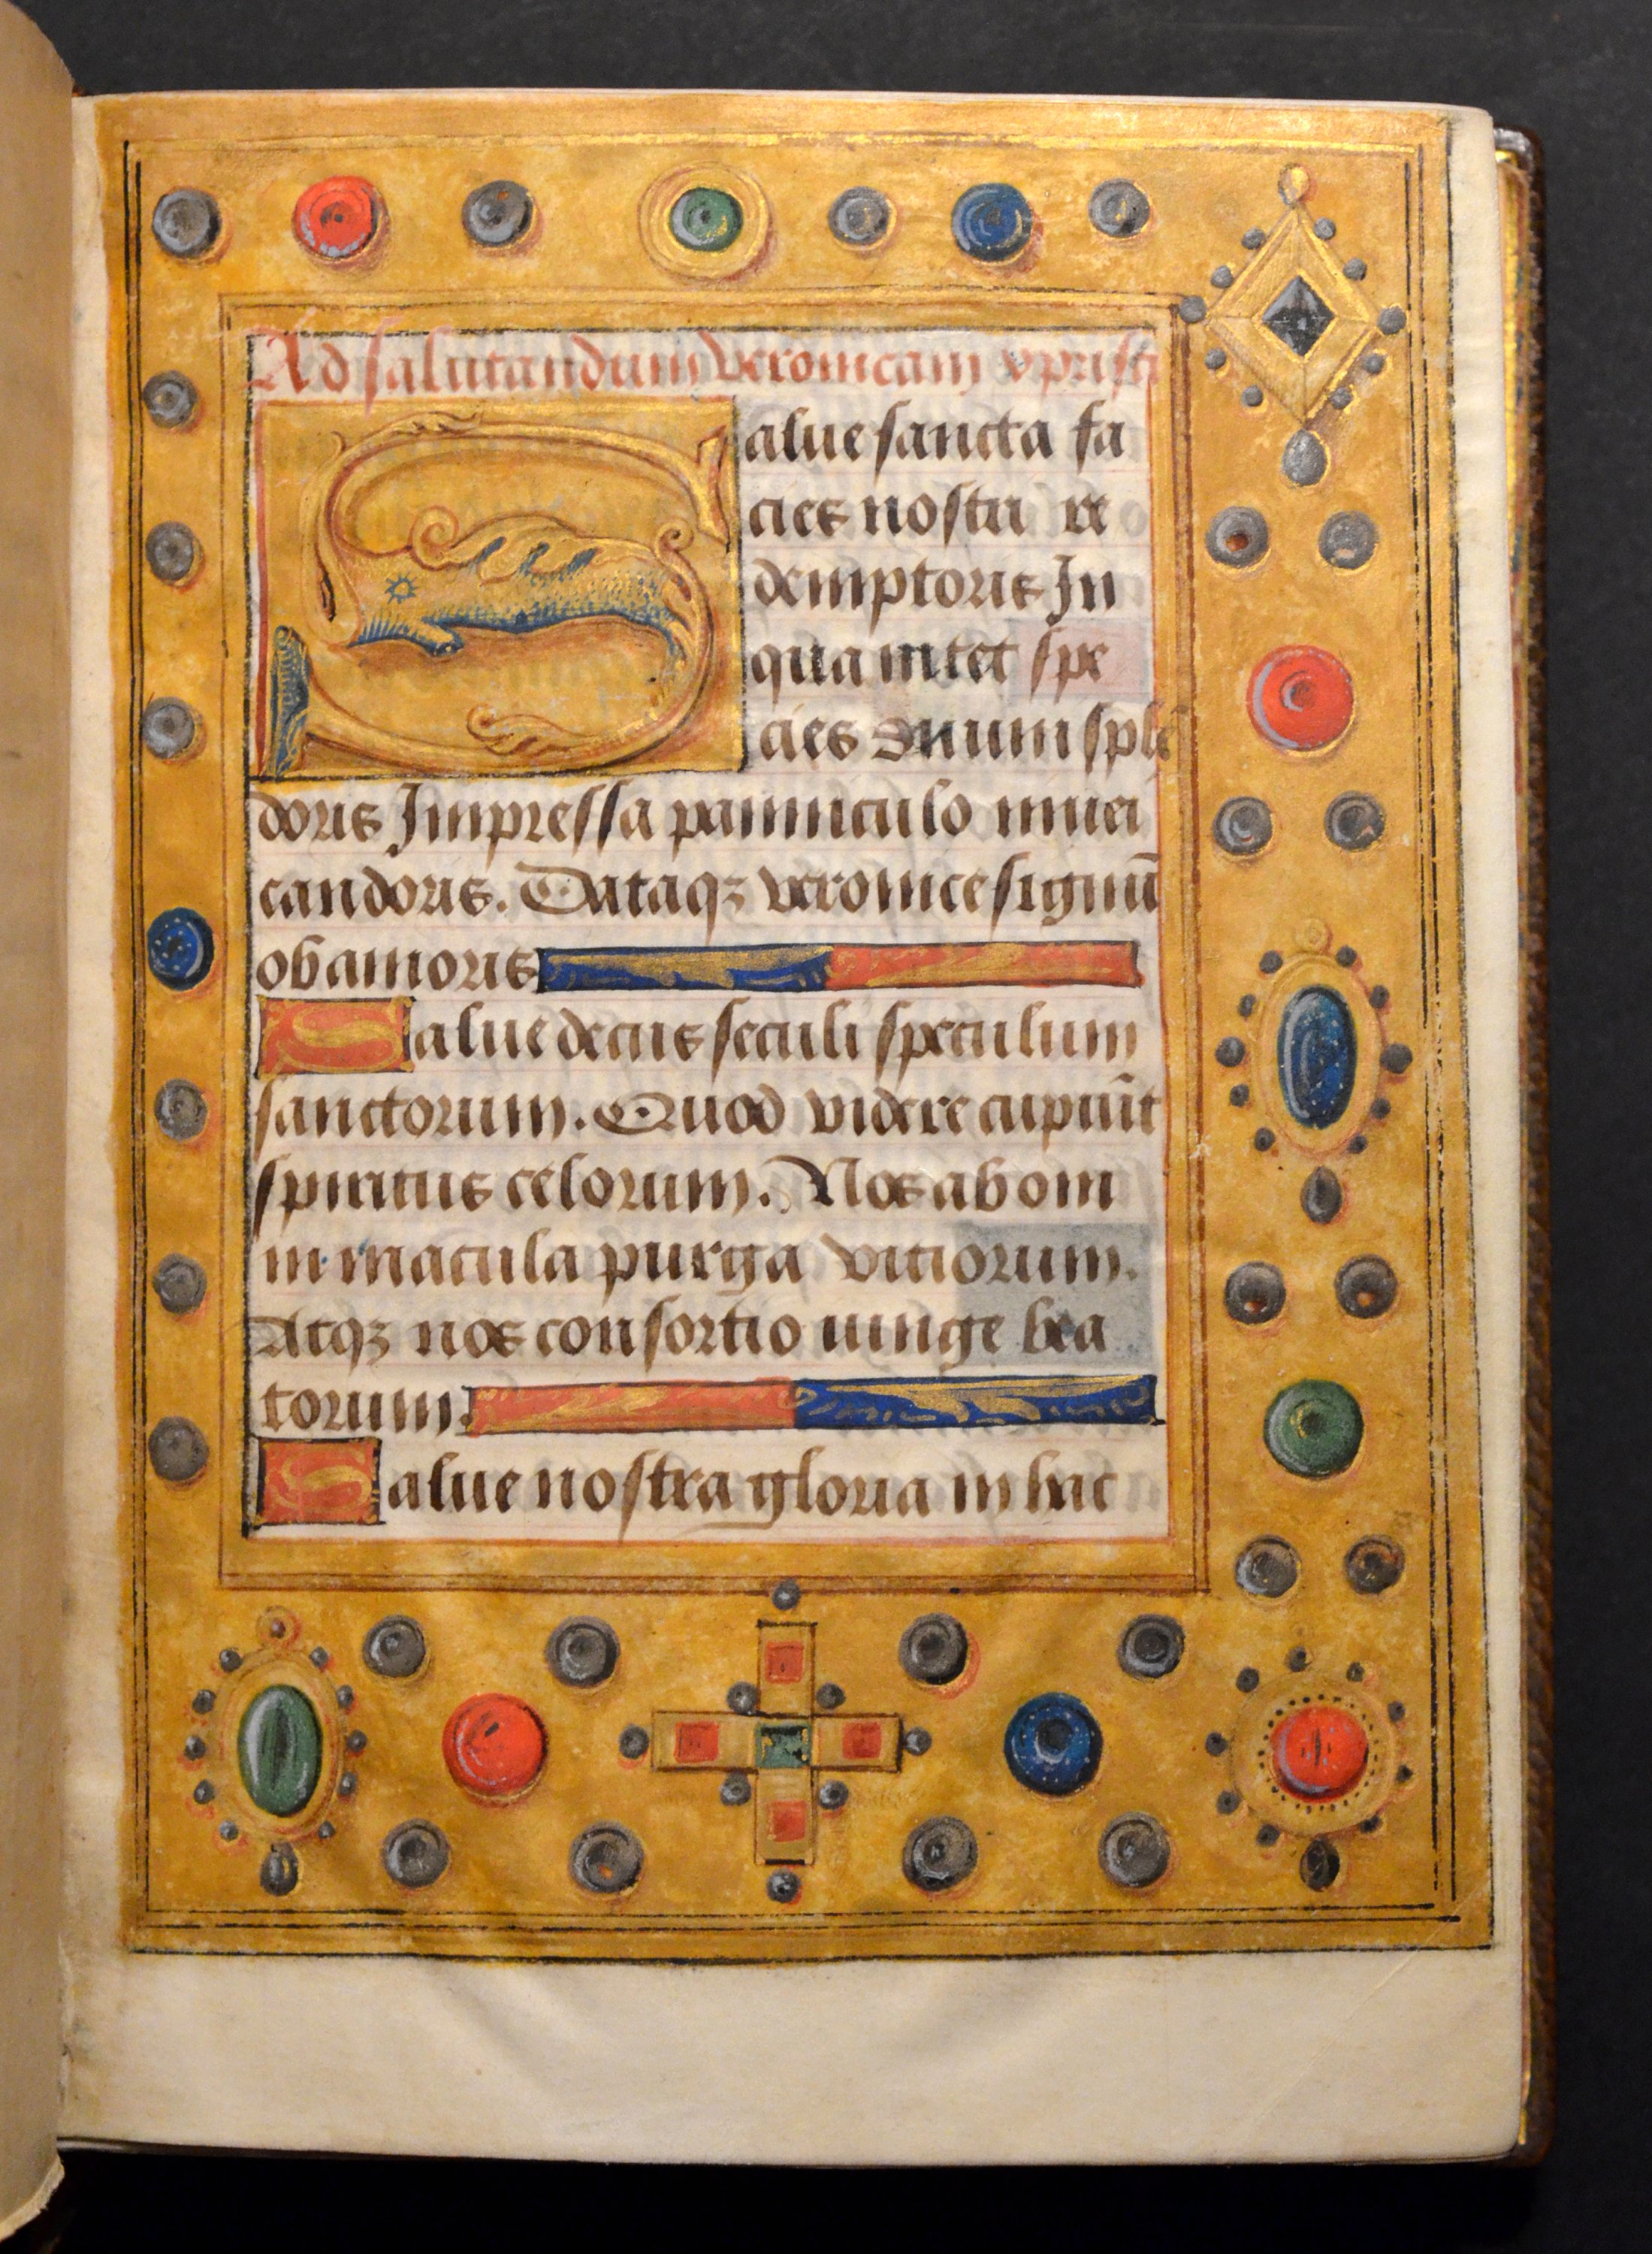 Ad salutandum veronicam xpristi
Salue sancta fa
cies nostri re
demptoris In
qua nitet spe
cies diuini splē
doris Impressa panniculo niuei
candoris. Dataqz veronice signū
ob amoris
Salue decus seculi speculum
sanctorum. Quod videre cupiūt
spiritus celorum. Nos ab om
ni macula purga vitiorum.
Atqz nos consortio iunge bea
torum.
Salue nostra gloria in hac